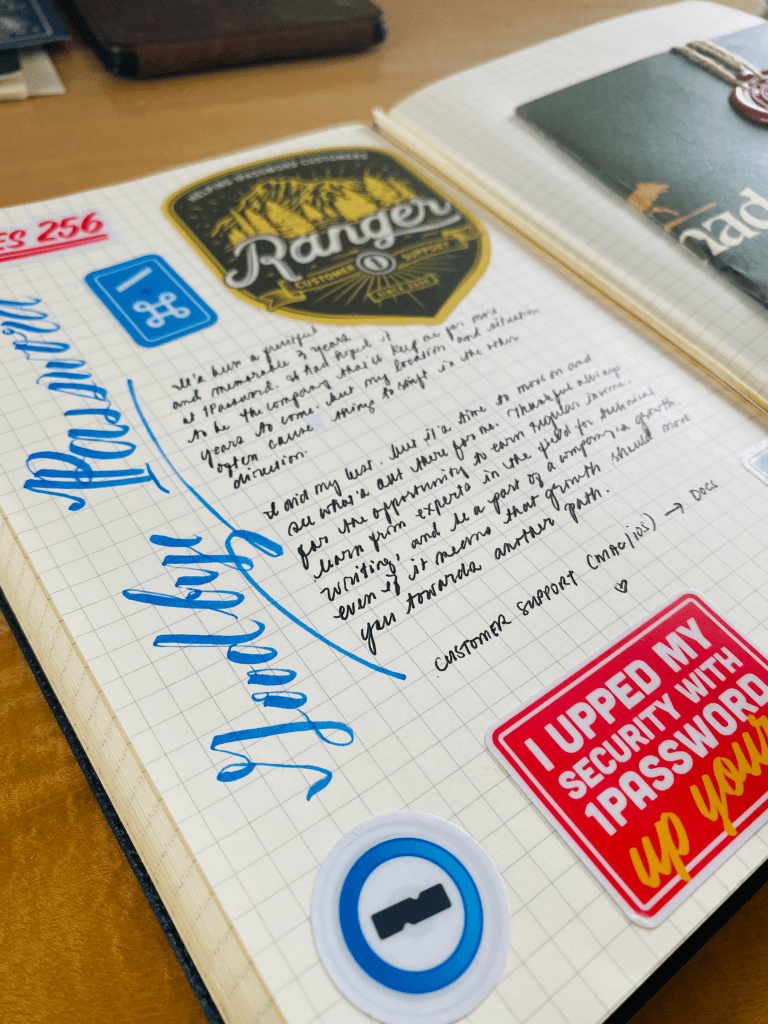 ES 256
HELPING 1PASSWORD CUSTOMERS
Ranger
CUSTOMER SUPPORT
SINCE 2005
\ ⌘
Goodbye
1Password
It's been a fruitful
and memorable 3 years
at 1Password. I had hoped it
to be the company that'll keep me for more
years to come, but my location and situation
often cause things to shift in the other
direction.
I did my best, but it's time to move on and
see what's out there for me. Thankful always
for the opportunity to earn regular income,
learn from experts in the field for technical
writing, and be a part of a company's growth.
even if it means that growth should move
you towards another path.
CUSTOMER SUPPORT (MAC/iOS) → DOCS
♡
I UPPED MY
SECURITY WITH
1PASSWORD
up your